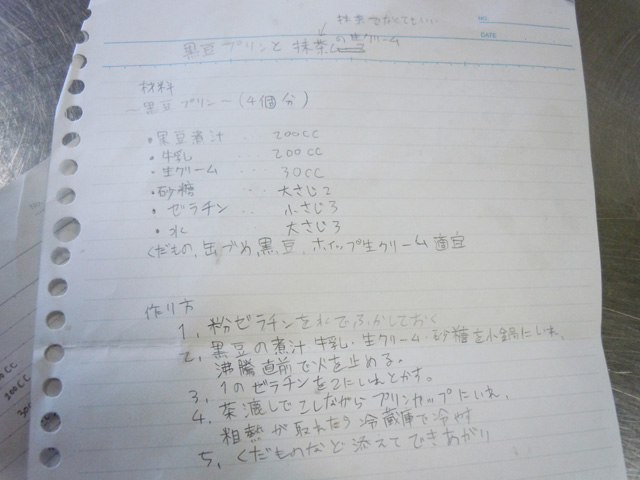 抹茶でなくてもいい
NO.
DATE
黒豆プリンと抹茶の生クリーム
材料
~黒豆プリン~(4個分)
・黒豆煮汁 ... 200cc
・牛乳 ... 200cc
・生クリーム ... 30cc
・砂糖 ... 大さじ2
・ゼラチン .. 小さじ3
・水 .. 大さじ3
くだもの、缶づめ、黒豆、ホイップ生クリーム 適宜
作り方
1、粉ゼラチンを水でふやかしておく
2、黒豆の煮汁、牛乳、生クリーム、砂糖を小鍋にいれ、
沸騰直前で火を止める。
3、1のゼラチンを2にいれとかす。
4、茶漉しでこしながらプリンカップにいれ、
粗熱が取れたら冷蔵庫で冷やす
5、くだものなど添えてできあがり